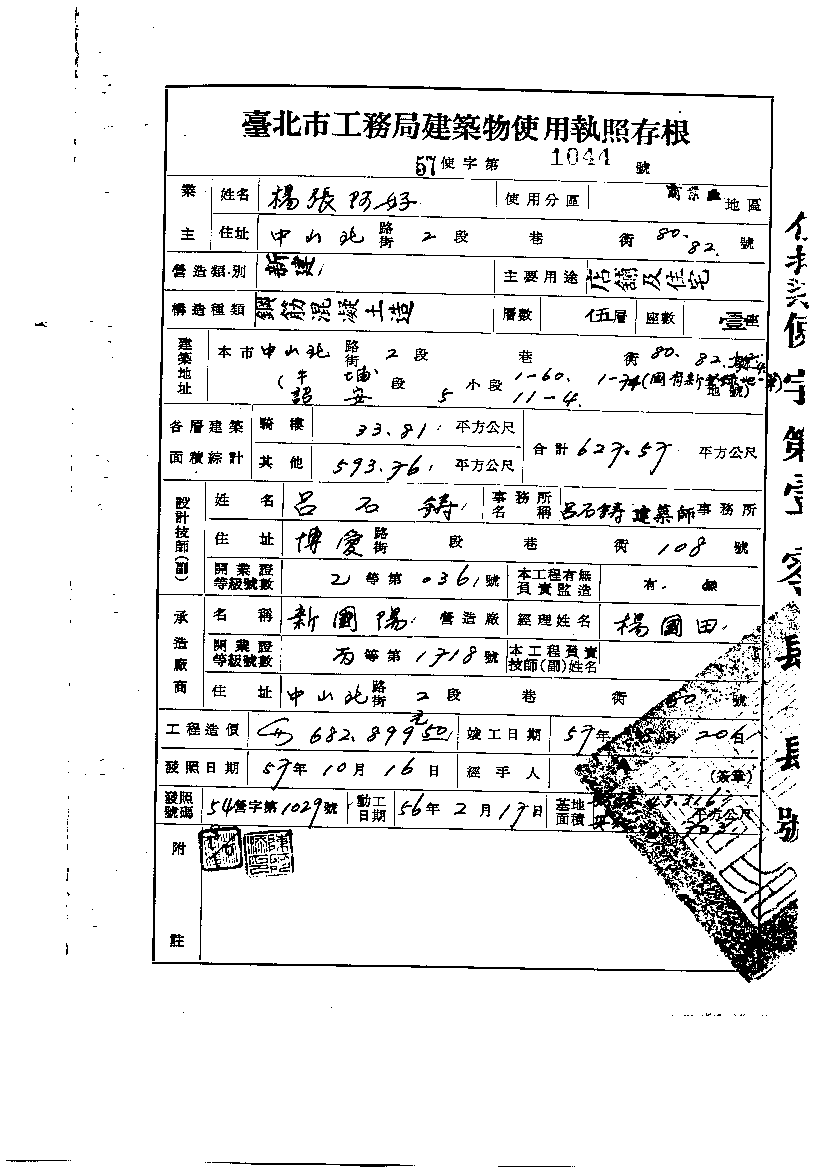 臺北市工務局建築物使用執照存根
57使字第 1044 號
業主 姓名 楊張阿好 使用分區 商業區 地區
住址 中山北 路街 2 段 巷 街 80. 82. 號
營造類別 新建 主要用途 店舖及住宅
構造種類 鋼筋混凝土造 層數 伍層 座數 壹座
建築地址 本市中山北 路街 2 段 巷 街 80. 82. 號
段 5 小段 1-60. 地號
詔安 11-4.
各層建築面積綜計 騎樓 33.81 平方公尺 合計 627.57 平方公尺
其他 593.76 平方公尺
設計技師(副) 姓名 呂石鑄 事務所名稱 呂石鑄建築師事務所
住址 博愛 路街 段 巷 街 108 號
開業證等級號數 乙等第0361號 本工程有無負責監造 有.
承造廠商 名稱 新國陽 營造廠 經理姓名 楊國田
開業證等級號數 丙等第1718號 本工程負責技師(副)姓名
住址 中山北 路街 2 段 巷 街 號
工程造價 682.899元50 竣工日期 57年 月20日
發照日期 57年10月16日 經手人 (簽章)
發照號碼 54營字第1029號 動工日期 56年2月17日 基地面積 平方公尺
附註
使字第壹零肆肆號